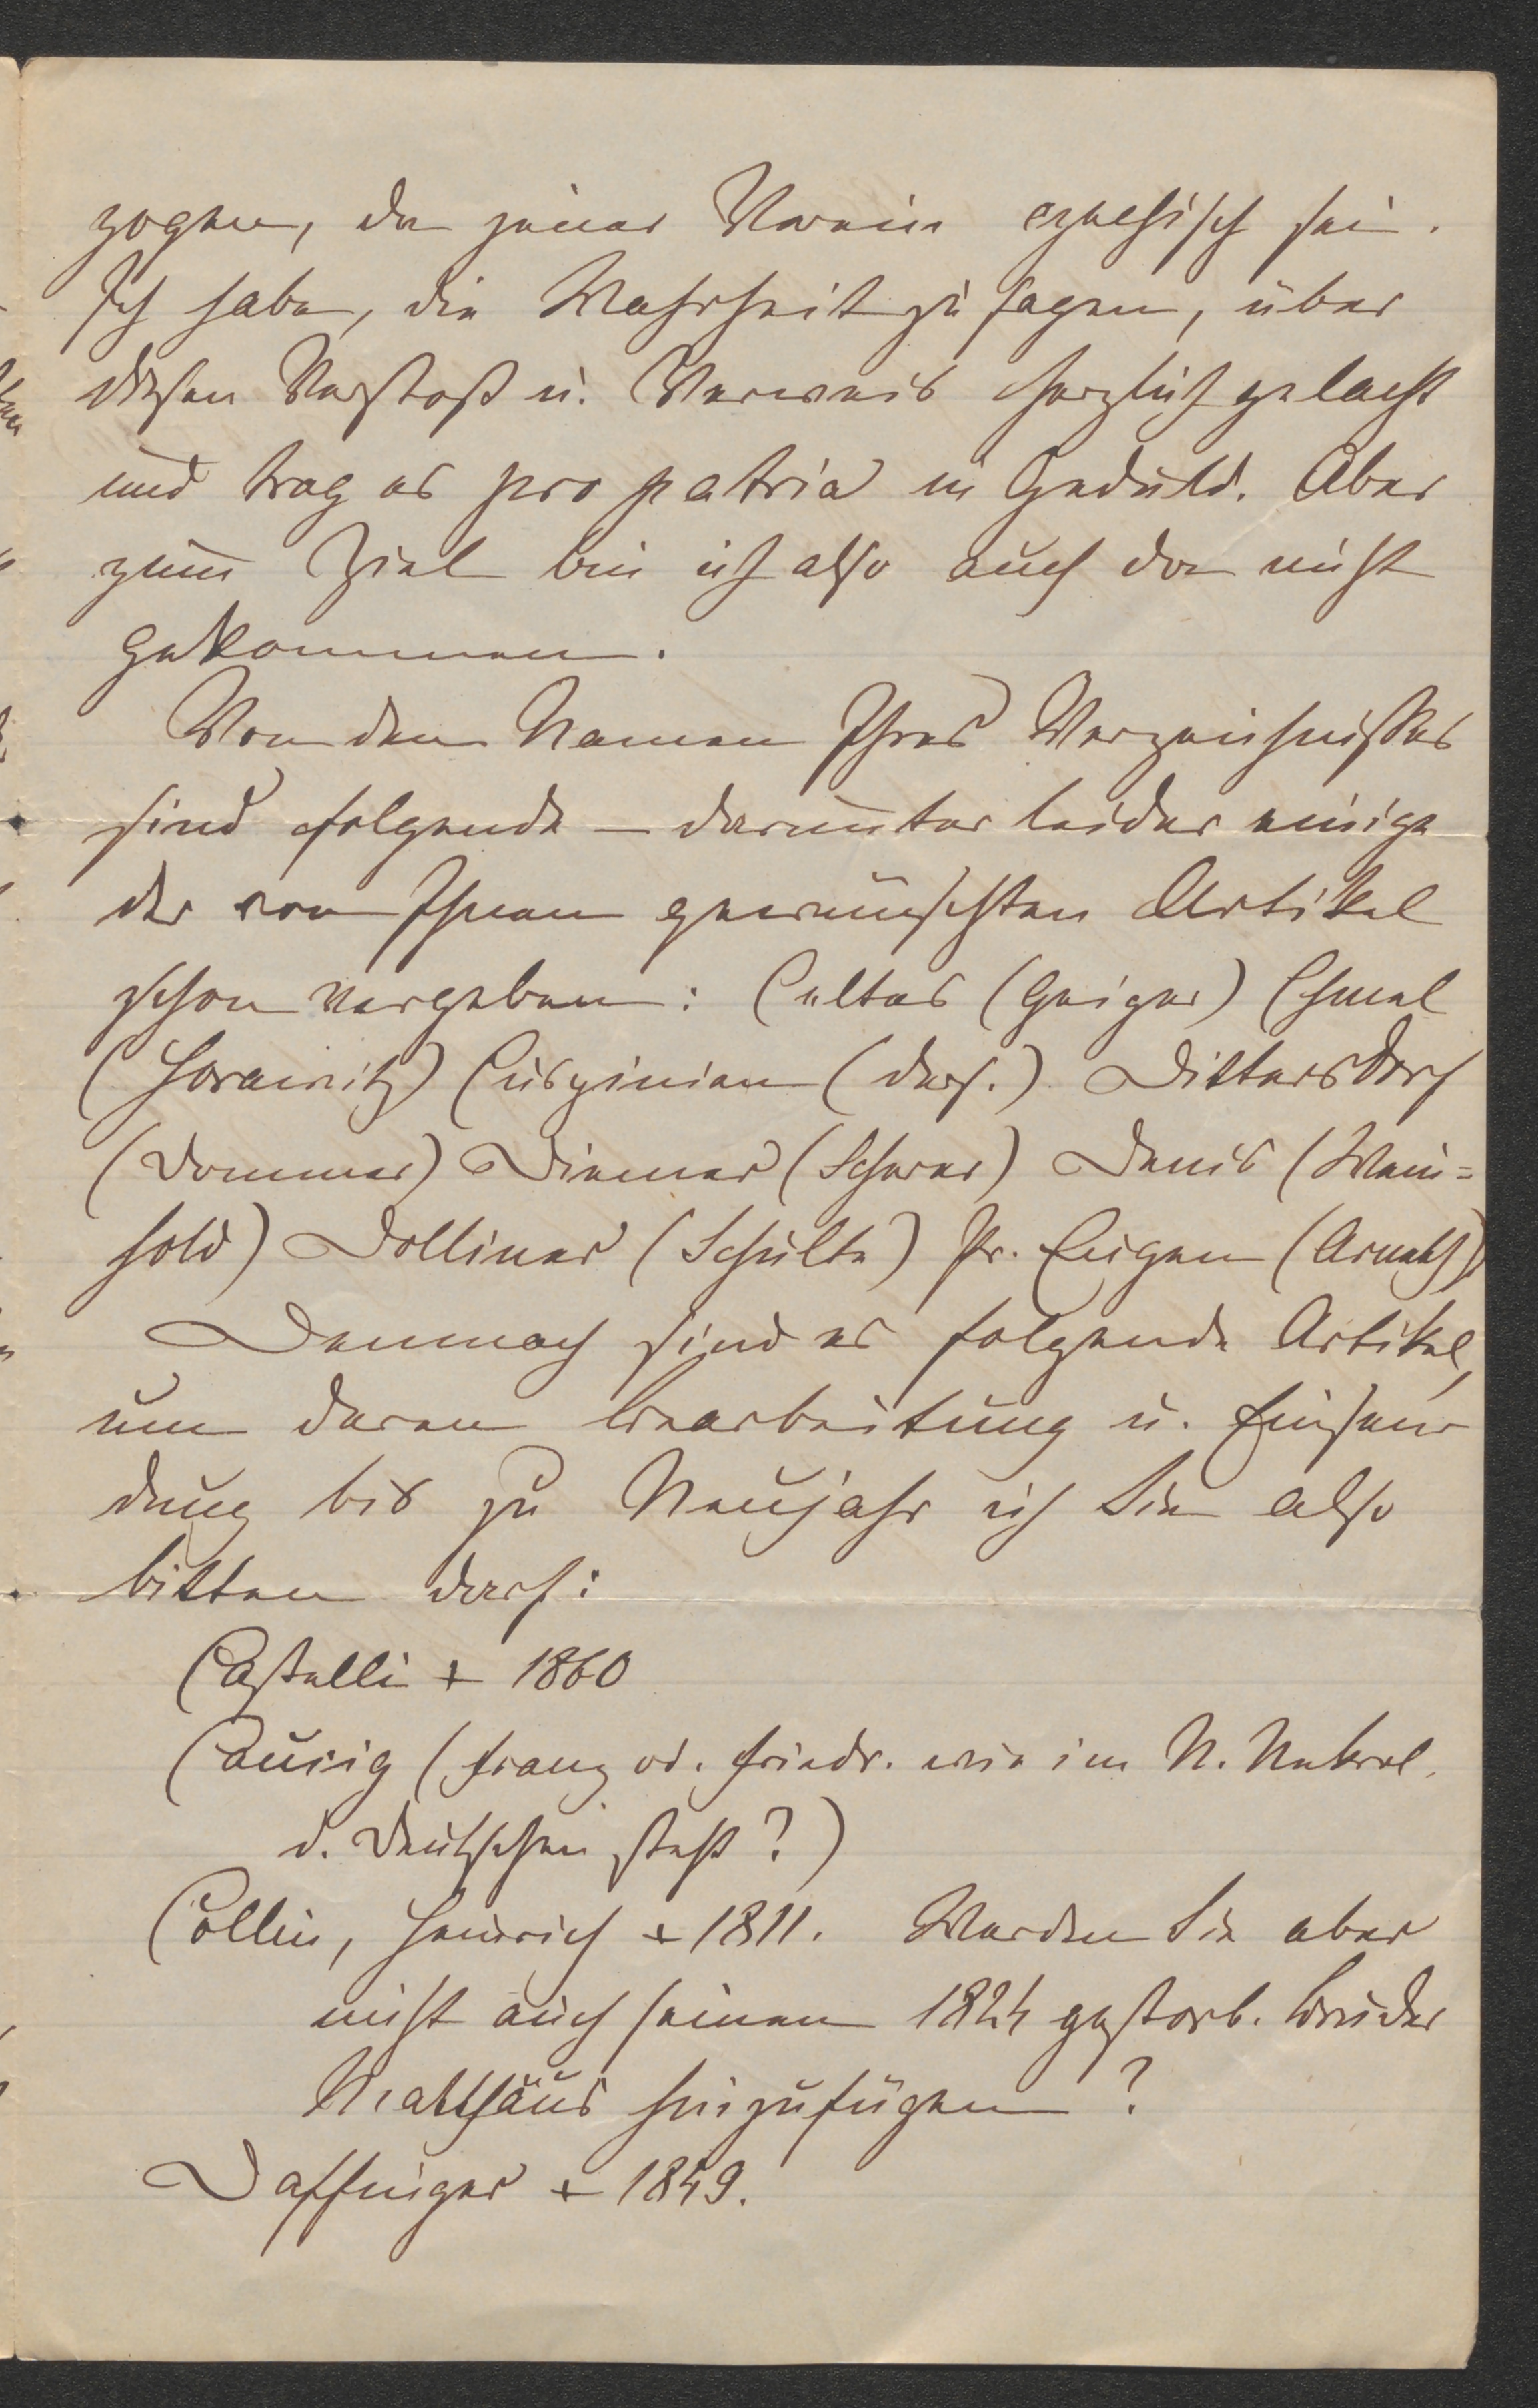 zogen, da jener Verein czechisch sei.
Ich habe, die Wahrheit zu sagen, über
diesen Verstoß u. Verweis herzlich gelacht
und trag es pro patria in Geduld. Aber
zum Ziel bin ich also auch da nicht
gekommen.
Von den Namen Ihres Verzeichnisses
sind folgende – darunter leider einige
der von Ihnen gewünschten Artikel
schon vergeben: Celtes (Geiger) Chmel
(Horawitz) Cuspinian (ders.) Dittersdorf
(Dommer) Diemer (Scherer) Denis (Wein=
hold) Dolliner (Schulte) Pr. Eugen (Arneth)
Demnach sind es folgende Artikel,
um deren Bearbeitung u. Einsen
dung bis zu Neujahr ich Sie also
bitten darf:
Castelli + 1860
Caucig (Franz od. Friedr. wie im N. Nekrol.
d. Deutschen steht?)
Collin, Heinrich + 1811. Werden Sie aber
nicht auch seinen 1824 gestorb. Bruder
Matthäus hinzufügen?
Daffinger + 1849.